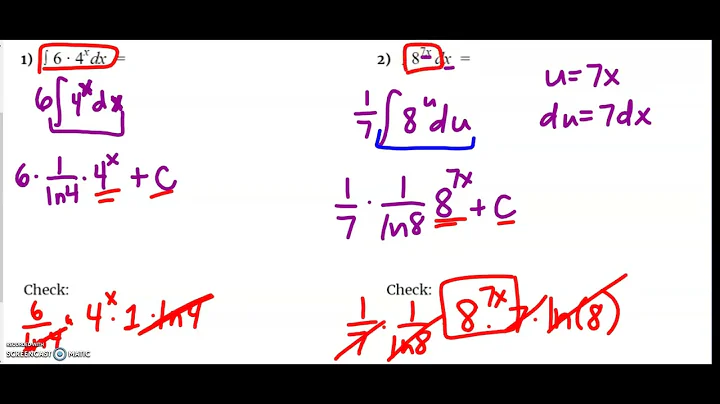 1) ∫ 6 · 4ˣ dx =
6 ∫ 4ˣ dx
6 · 1/ln4 · 4ˣ + C
Check:
6/ln4 · 4ˣ · 1 · ln4
2) ∫ 8⁷ˣ dx =
u = 7x
du = 7dx
1/7 ∫ 8ᵘ du
1/7 · 1/ln8 8⁷ˣ + C
Check:
1/7 · 1/ln8 · 8⁷ˣ · 7 · ln(8)
RECORDED WITH
SCREENCAST O MATIC